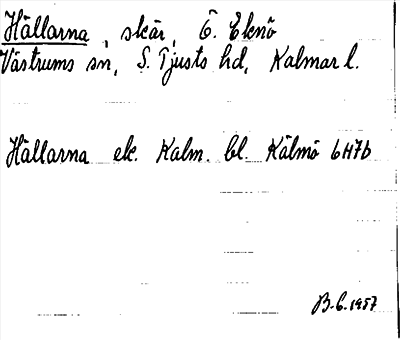 Hällarna, skär, Ö. Eknö
Västrums sn, S. Tjusts hd, Kalmar l.
Hällarna ek. Kalm. bl. Kälmö 6H7b
B.C. 1957